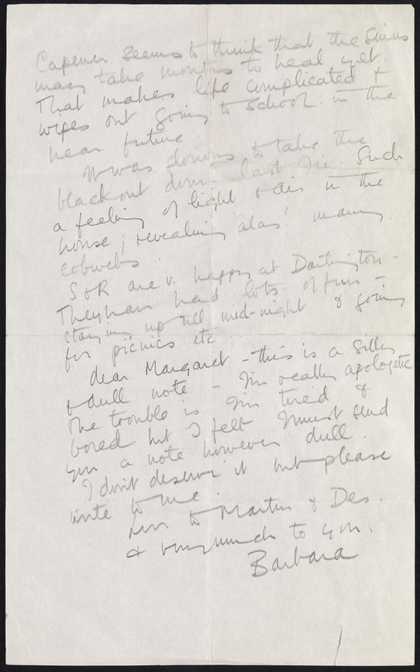 Capener seems to think that the sinus
may take months to heal yet.
That makes life complicated &
wipes out going to school in the
near future.
It was lovely to take the
blackout down last Fri. Such
a feeling of light & air in the
house; revealing alas! many
cobwebs.
S & R are v. happy at Dartington -
They have had lots of fun -
staying up till mid-night & going
for picnics etc
dear Margaret - this is a silly
& dull note - I'm really apologetic
The trouble is I'm tired &
bored but I felt I must send
you a note however dull.
I don't deserve it but please
write to me.
Love to Martin & Des.
& very much to you.
Barbara